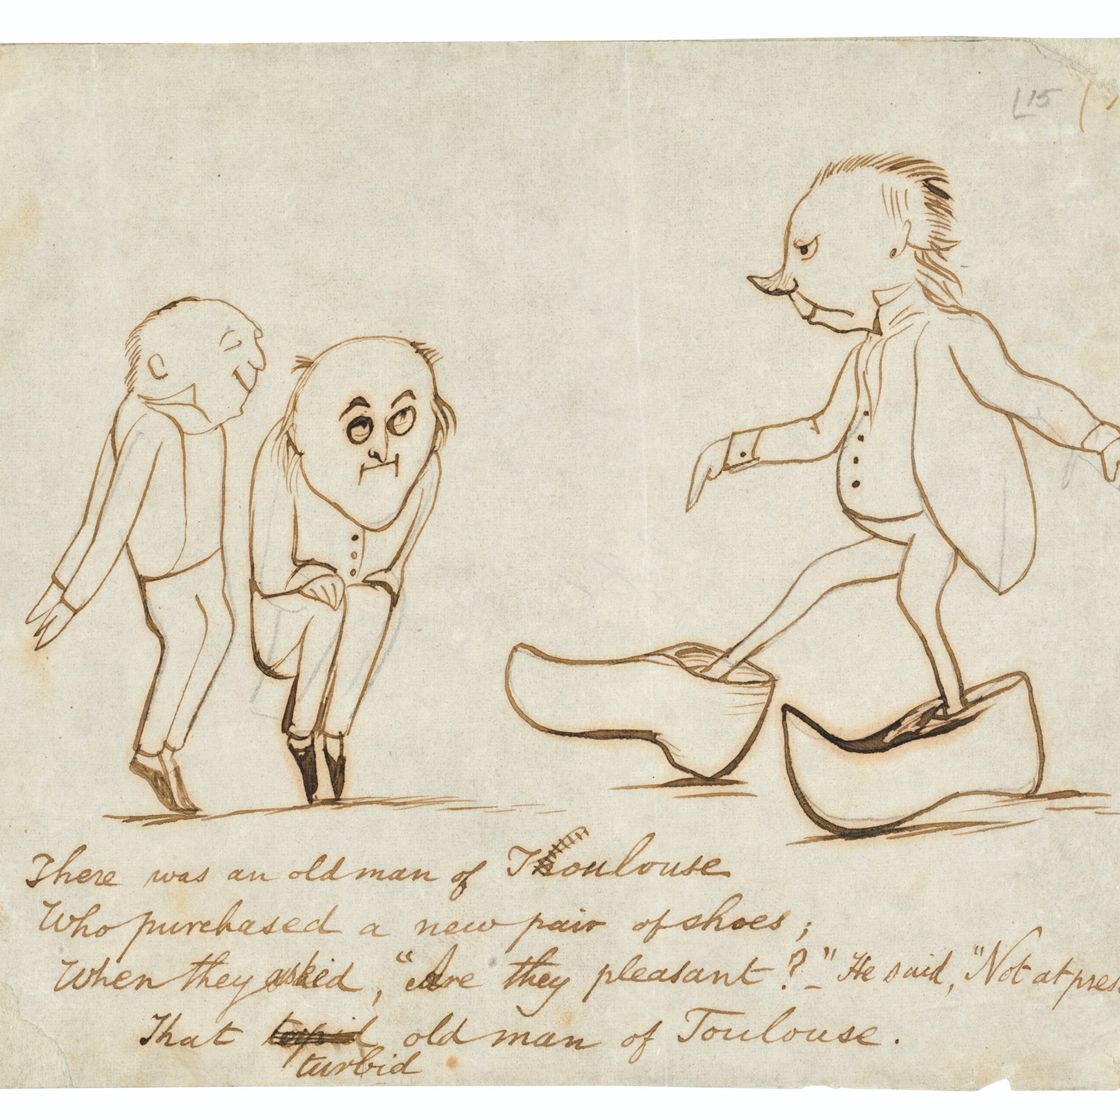 L15
There was an old man of Toulouse
Who purchased a new pair of shoes;
When they asked, "Are they pleasant?" – He said, "Not at pres
That torpid old man of Toulouse.
turbid